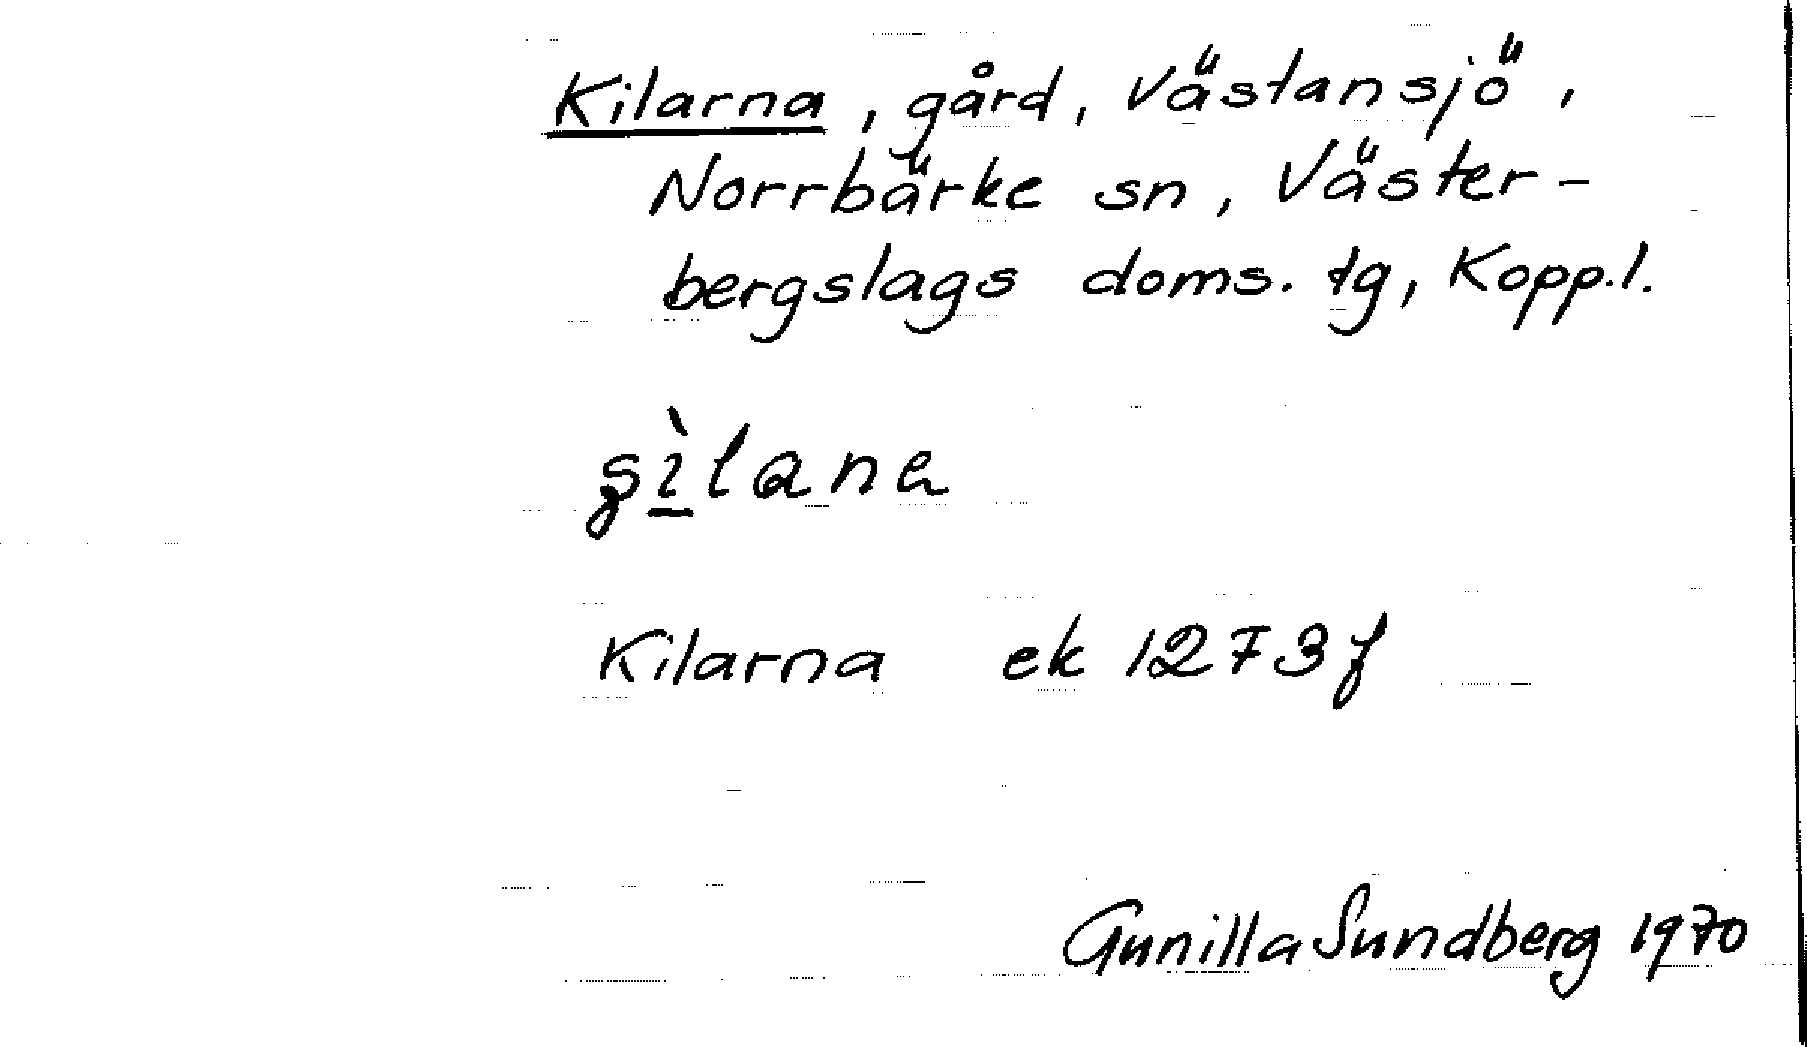 Kilarna, gård, Västansjö,
Norrbärke sn, Väster-
bergslags doms. tg, Kopp.l.
ʂì̱lana
Kilarna ek 1273f
Gunilla Sundberg 1970